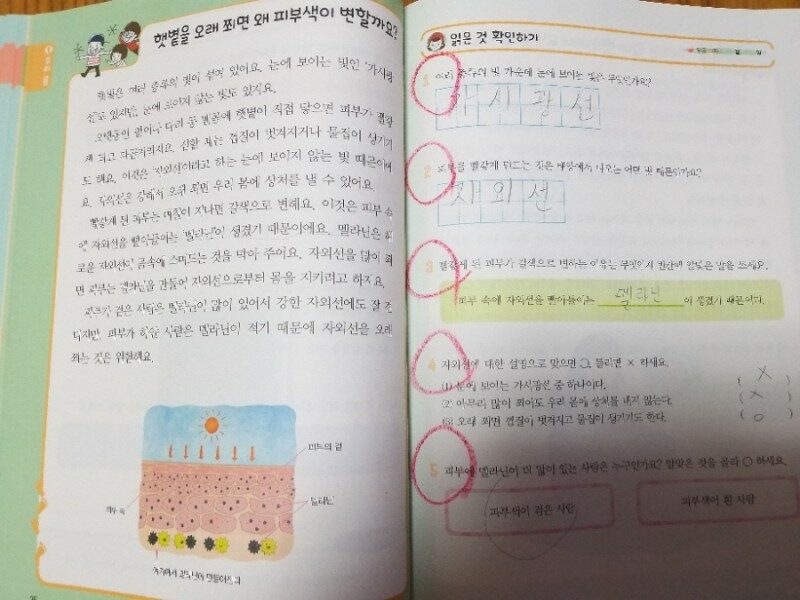 햇볕을 오래 쬐면 왜 피부색이 변할까요?
햇빛은 여러 종류의 빛이 섞여 있어요. 눈에 보이는 빛인 '가시광
선'도 있지만, 눈에 보이지 않는 빛도 있지요.
오랫동안 햇볕이 직접 닿으면 피부가 빨갛
게 되고 따끔거리지요. 심할 때는 껍질이 벗겨지거나 물집이 생기기
도 해요. 이것은 '자외선'이라고 하는 눈에 보이지 않는 빛 때문이에
요. 자외선은 강해서 오래 쬐면 우리 몸에 상처를 낼 수 있어요.
빨갛게 된 피부는 며칠이 지나면 갈색으로 변해요. 이것은 피부 속
에 자외선을 빨아들이는 '멜라닌'이 생겼기 때문이에요. 멜라닌은 해
로운 자외선이 몸속에 스며드는 것을 막아 주어요. 자외선을 많이 쬐
면 피부는 멜라닌을 만들어 자외선으로부터 몸을 지키려고 하지요.
피부가 검은 사람은 멜라닌이 많이 있어서 강한 자외선에도 잘 견
디지만, 피부가 하얀 사람은 멜라닌이 적기 때문에 자외선을 오래
쬐는 것은 위험해요.
피부의 겉
피부 속
멜라닌
여기에서 멜라닌이 만들어진다
읽은 것 확인하기
월 일
1 여러 종류의 빛 가운데 눈에 보이는 빛은 무엇인가요?
가시광선
2 피부를 빨갛게 만드는 것은 태양에서 나오는 어떤 빛 때문인가요?
자외선
3 빨갛게 된 피부가 갈색으로 변하는 이유는 무엇인지 빈칸에 알맞은 말을 쓰세요.
피부 속에 자외선을 빨아들이는 멜라닌 이 생겼기 때문이다.
4 자외선에 대한 설명으로 맞으면 ○, 틀리면 × 하세요.
(1) 눈에 보이는 가시광선 중 하나이다. ( × )
(2) 아무리 많이 쬐어도 우리 몸에 상처를 내지 않는다. ( × )
(3) 오래 쬐면 껍질이 벗겨지고 물집이 생기기도 한다. ( ○ )
5 피부에 멜라닌이 더 많이 있는 사람은 누구인가요? 알맞은 것을 골라 ○ 하세요.
피부색이 검은 사람 피부색이 흰 사람